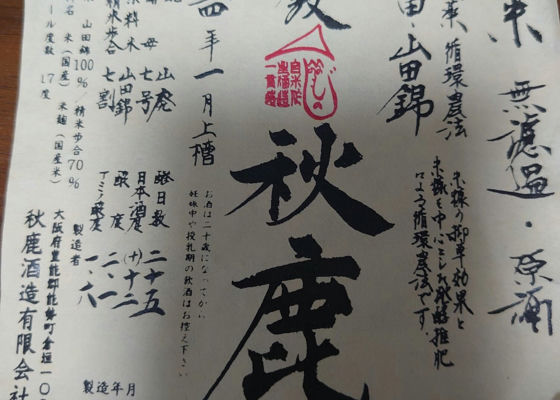 米 無濾過・原酒
薬 循環農法
米糠の抑草効果と
米糠を中心とした発酵堆肥
による循環農法です。
田・山田錦
へのじ
秋鹿
お酒は二十歳になってから
妊娠中や授乳期の飲酒はお控え下さい
四年一月上槽
山廃
酵母 七号
原料米 山田錦
精米歩合 七割
醪日数 二十五
日本酒度 (+)十二
酸度 二・一
アミノ酸度 一・六
山田錦100%/精米歩合70%
料名 米(国産) 米麹(国産米)
ール度数 17度
製造者
大阪府豊能郡能勢町倉垣10
秋鹿酒造有限会社
製造年月